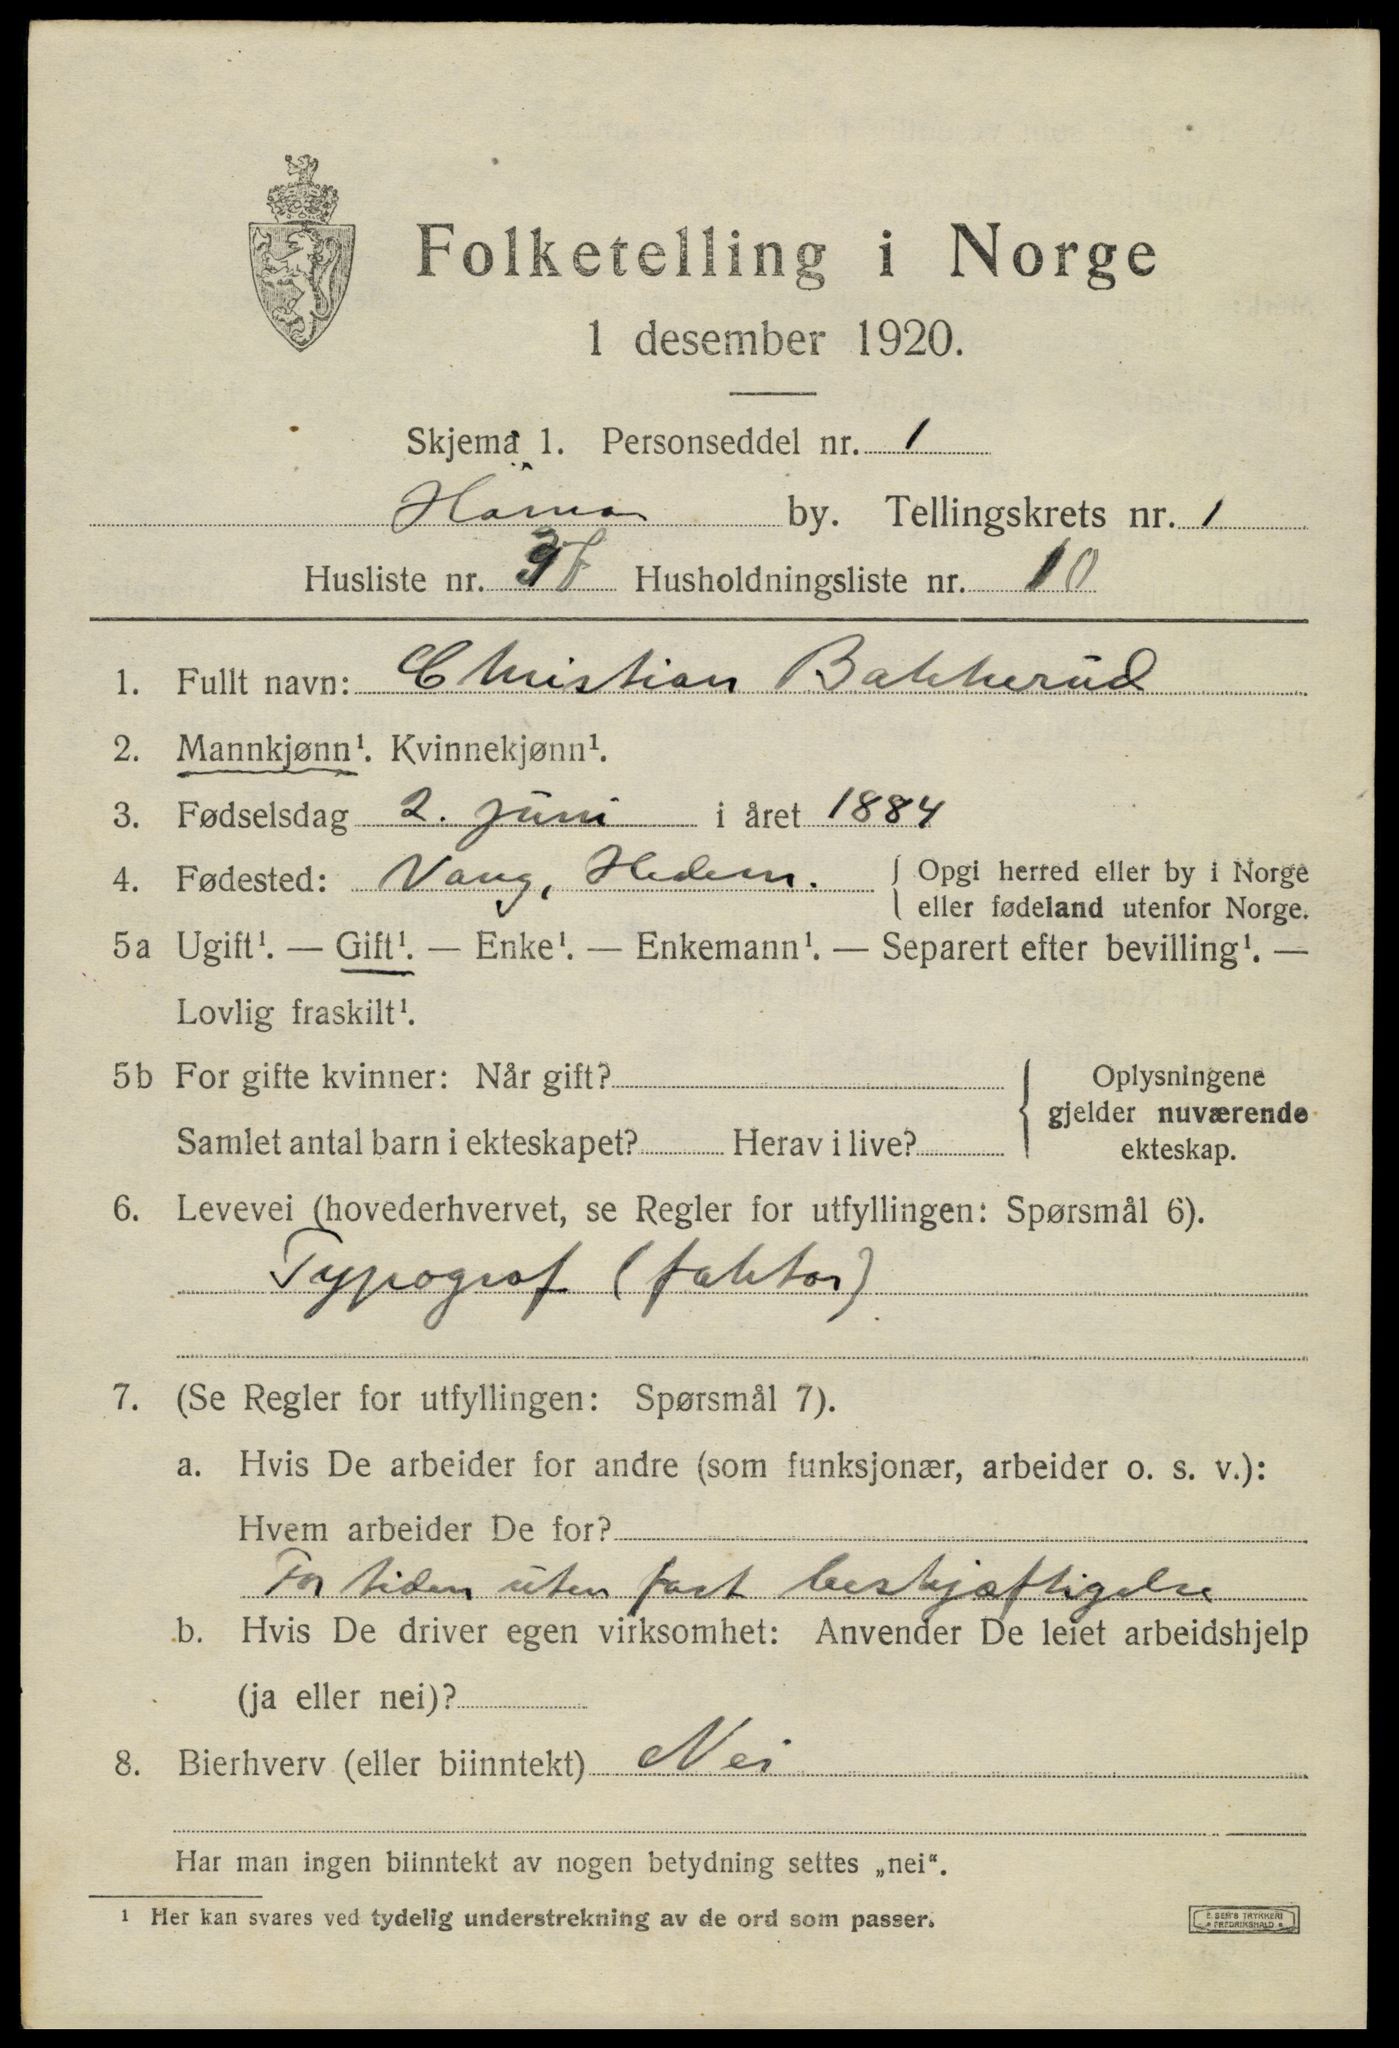 Folketelling i Norge
1 desember 1920.
Skjema 1. Personseddel nr. 1
Hamar by. Tellingskrets nr. 1
Husliste nr. Husholdningsliste nr. 10
1. Fullt navn: Christian Bakkerud
2. Mannkjønn¹. Kvinnekjønn¹.
3. Fødselsdag 2. juni i året 1884
4. Fødested: Vang, Hedem. { Opgi herred eller by i Norge
eller fødeland utenfor Norge.
5a Ugift¹. — Gift¹. — Enke¹. — Enkemann¹. — Separert efter bevilling¹. —
Lovlig fraskilt¹.
5b For gifte kvinner: Når gift? { Oplysningene
gjelder nuværende
Samlet antal barn i ekteskapet? Herav i live? ekteskap.
6. Levevei (hovederhvervet, se Regler for utfyllingen: Spørsmål 6).
Typograf (faktor)
7. (Se Regler for utfyllingen: Spørsmål 7).
a. Hvis De arbeider for andre (som funksjonær, arbeider o. s. v.):
Hvem arbeider De for?
For tiden uten fast beskjæftigelse
b. Hvis De driver egen virksomhet: Anvender De leiet arbeidshjelp
(ja eller nei)?
8. Bierhverv (eller biinntekt) Nei
Har man ingen biinntekt av nogen betydning settes „nei“.
¹ Her kan svares ved tydelig understrekning av de ord som passer.
E. SEM'S TRYKKERI
FREDRIKSHALD